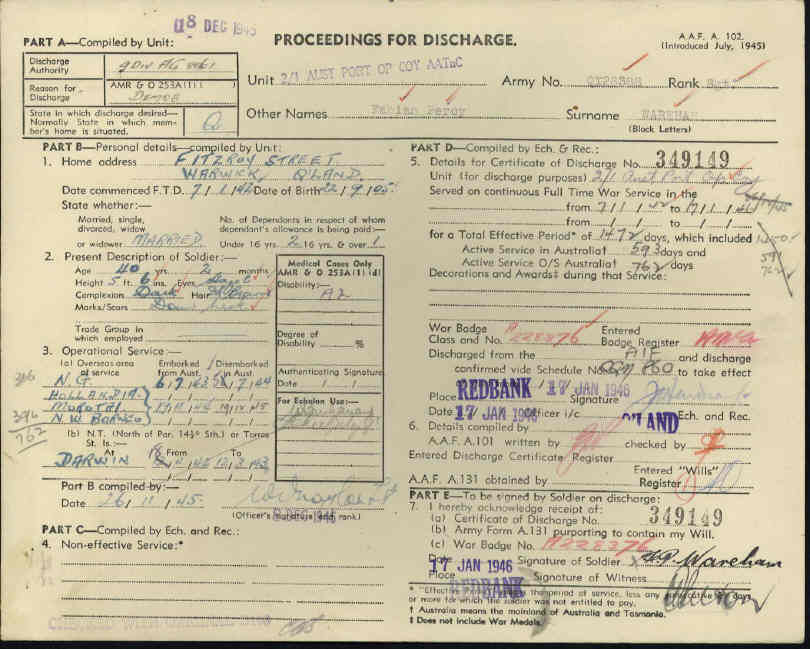 18 DEC 1945
PART A—Compiled by Unit:
PROCEEDINGS FOR DISCHARGE.
A.A.F. A. 102.
(Introduced July, 1945)
Discharge Authority
Reason for Discharge
AMR & O 253A(1)( )
DEMOB
State in which discharge desired—
Normally State in which mem-
ber's home is situated.
Q
Unit 2/1 AUST PORT OP COY AATnC
Army No.
Rank Sgt.
Other Names Fabian Percy
Surname WAREHAM
(Block Letters)
PART B—Personal details—compiled by Unit:
1. Home address FITZROY STREET.
WARWICK, QLAND.
Date commenced F.T.D. 7/1/42 Date of Birth 22/9/05.
State whether:—
Married, single,
divorced, widow
or widower MARRIED.
No. of Dependents in respect of whom
dependant's allowance is being paid:—
Under 16 yrs. 2 16 yrs. & over 1
2. Present Description of Soldier:—
Age 40 yrs. 2 months
Height 5 ft. 6 ins. Eyes
Complexion Dark Hair
Marks/Scars
Trade Group in
which employed
Medical Cases Only
AMR & O 253A(1)(d)
Disability:—
A2
Degree of
Disability %
Authenticating Signature
Date / /
For Echelon Use:—
3. Operational Service:—
(a) Overseas area
of service
Embarked
from Aust.
Disembarked
in Aust.
N.G.
HOLLANDIA
MOROTAI
N.W. BORNEO
396
762
(b) N.T. (North of Par. 14½° Sth.) or Torres
St. Is.:—
At From To
DARWIN
Part B compiled by:—
Date 26/11/45
(Officer's signature and rank.)
PART C—Compiled by Ech. and Rec.:
4. Non-effective Service:*
PART D—Compiled by Ech. & Rec.:
5. Details for Certificate of Discharge No. 349149
Unit (for discharge purposes) 2/1 Aust Port Op Coy
Served on continuous Full Time War Service in the
from 7/1/42 to 17/1/46
from to
for a Total Effective Period* of 1472 days, which included
Active Service in Australia† 593 days and
Active Service O/S Australia† 762 days
Decorations and Awards‡ during that Service:
War Badge
Class and No. A228376
Entered
Badge Register
Discharged from the AIF and discharge
confirmed vide Schedule No. to take effect
/ /
Place REDBANK 17 JAN 1946 Signature
Date 17 JAN 1946 Officer i/c Q'LAND Ech. and Rec.
6. Details compiled by
A.A.F. A.101 written by checked by
Entered Discharge Certificate Register
A.A.F. A.131 obtained by
Entered "Wills"
Register
PART E—To be signed by Soldier on discharge:
7. I hereby acknowledge receipt of:
(a) Certificate of Discharge No. 349149
(b) Army Form A.131 purporting to contain my Will.
(c) War Badge No. A228376
Date 17 JAN 1946 Signature of Soldier F.P. Wareham
Place REDBANK Signature of Witness
* "Effective Period" means the period of service, less any consecutive days
or more for which the soldier was not entitled to pay.
† Australia means the mainland of Australia and Tasmania.
‡ Does not include War Medals.